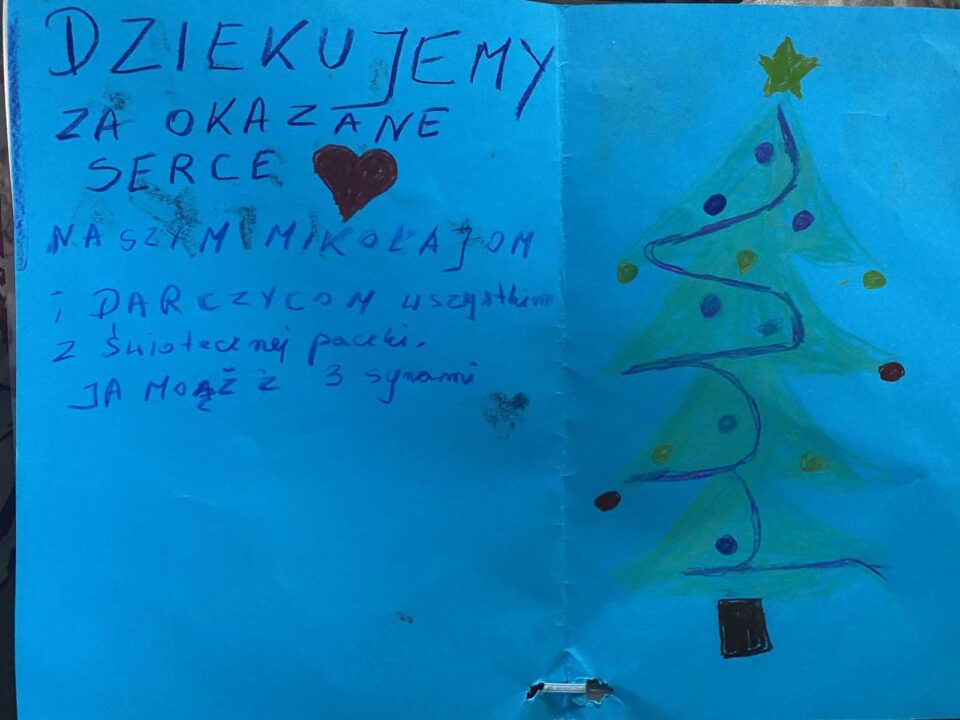 DZIEKUJEMY
ZA OKAZANE
SERCE
NASZYM MIKOŁAJOM
i DARCZYCOM wszystkim
z świątecznej paczki.
JA MĄŻ z 3 synami